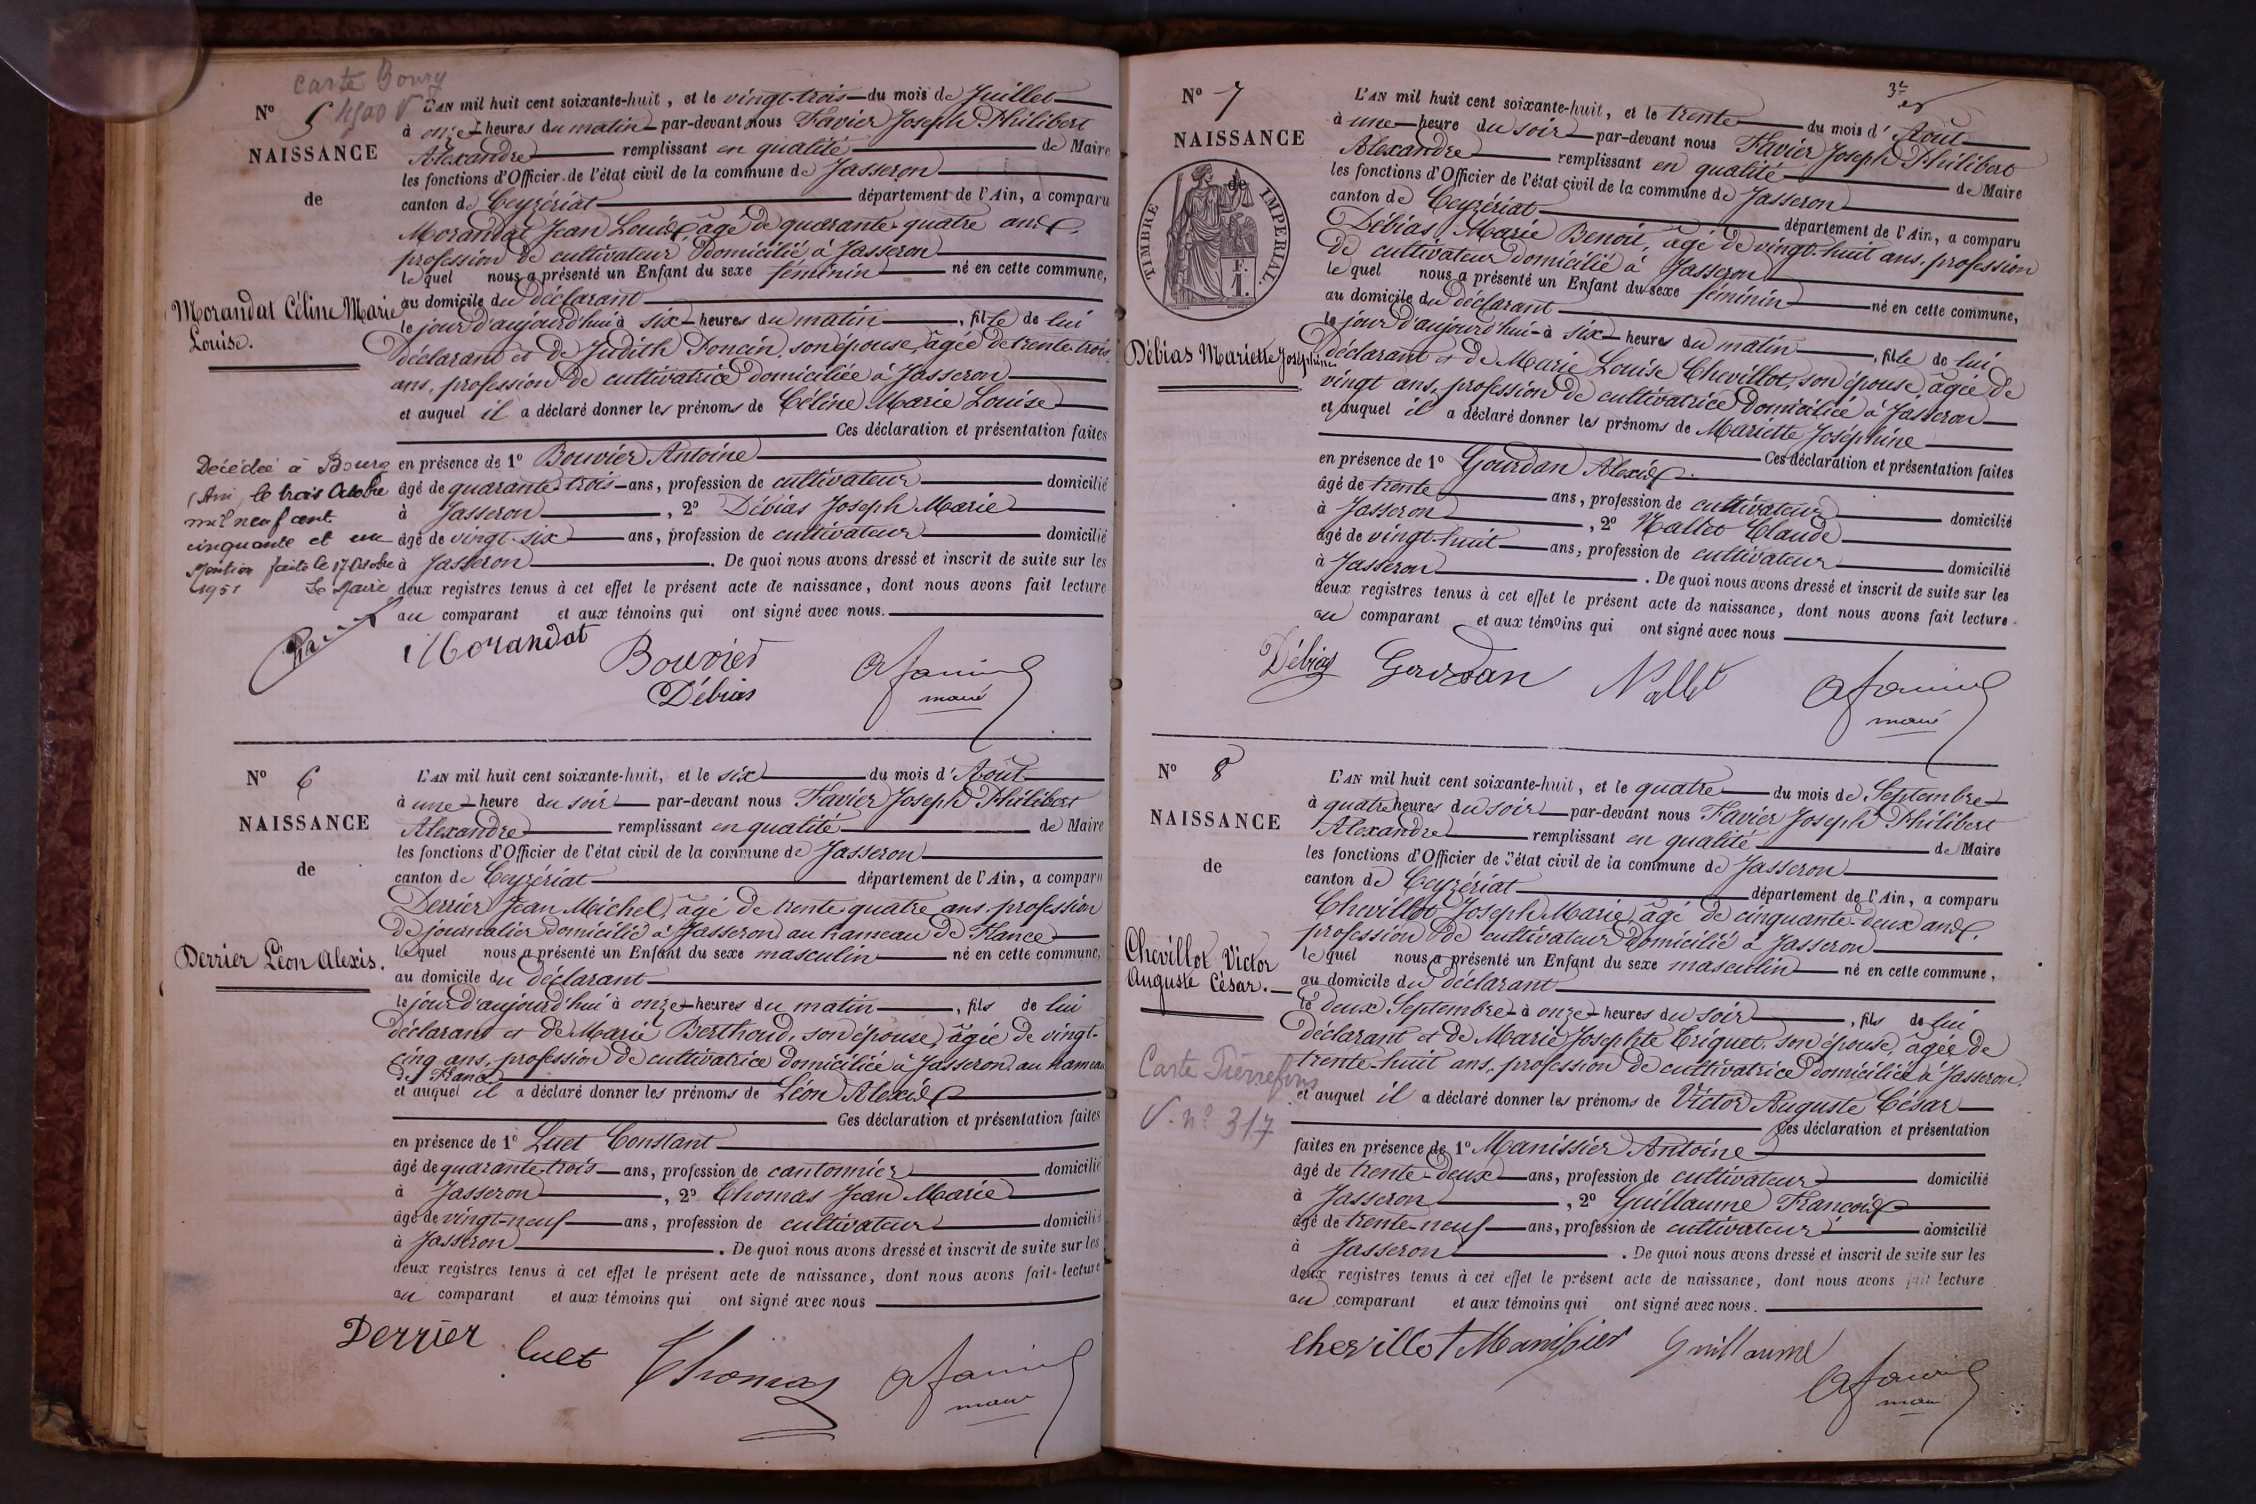 carte Bourg
4900 V
N° 5
NAISSANCE
de
Morandat Céline Marie
Louise.
L'AN mil huit cent soixante-huit, et le vingt-trois du mois de Juillet
à onze heures du matin par-devant nous Favier Joseph Philibert
Alexandre remplissant en qualité de Maire
les fonctions d'Officier de l'état civil de la commune de Jasseron
canton de Ceyzériat département de l'Ain, a comparu
Morandat Jean Louis, âgé de quarante-quatre ans,
profession de cultivateur domicilié à Jasseron
lequel nous a présenté un Enfant du sexe féminin né en cette commune,
au domicile du déclarant
le jour d'aujourd'hui à six heures du matin, fille de lui
déclarant et de Judith Poncin, son épouse, âgée de trente-trois
ans, profession de cultivatrice domiciliée à Jasseron
et auquel il a déclaré donner les prénoms de Céline Marie Louise
Ces déclaration et présentation faites
en présence de 1° Bouvier Antoine
âgé de quarante-trois ans, profession de cultivateur domicilié
à Jasseron, 2° Débias Joseph Marie
âgé de vingt-six ans, profession de cultivateur domicilié
à Jasseron. De quoi nous avons dressé et inscrit de suite sur les
deux registres tenus à cet effet le présent acte de naissance, dont nous avons fait lecture
au comparant et aux témoins qui ont signé avec nous.
Décédée à Bourg
(Ain) le trois Octobre
mil neuf cent
cinquante et un
Mention faite le 17 Octobre
1951 Le Maire
Morandat Bouvier
Débias
maire
N° 6
NAISSANCE
de
Derrier Léon Alexis.
L'AN mil huit cent soixante-huit, et le six du mois d'Août
à une heure du soir par-devant nous Favier Joseph Philibert
Alexandre remplissant en qualité de Maire
les fonctions d'Officier de l'état civil de la commune de Jasseron
canton de Ceyzériat département de l'Ain, a comparu
Derrier Jean Michel, âgé de trente quatre ans, profession
de journalier domicilié à Jasseron au hameau de France
lequel nous a présenté un Enfant du sexe masculin né en cette commune,
au domicile du déclarant
le jour d'aujourd'hui à onze heures du matin, fils de lui
déclarant et de Marie Berthoud, son épouse, âgée de vingt-
cinq ans, profession de cultivatrice domiciliée à Jasseron au hameau
de France
et auquel il a déclaré donner les prénoms de Léon Alexis
Ces déclaration et présentation faites
en présence de 1° Luet Constant
âgé de quarante-trois ans, profession de cantonnier domicilié
à Jasseron, 2° Thomas Jean Marie
âgé de vingt-neuf ans, profession de cultivateur domicilié
à Jasseron. De quoi nous avons dressé et inscrit de suite sur les
deux registres tenus à cet effet le présent acte de naissance, dont nous avons fait lecture
au comparant et aux témoins qui ont signé avec nous
Derrier Luet Thomas
maire
N° 7
NAISSANCE
de
TIMBRE IMPERIAL
Débias Mariette Joséphine
L'AN mil huit cent soixante-huit, et le trente du mois d'Août
à une heure du soir par-devant nous Favier Joseph Philibert
Alexandre remplissant en qualité de Maire
les fonctions d'Officier de l'état civil de la commune de Jasseron
canton de Ceyzériat département de l'Ain, a comparu
Débias, Marie Benoit, âgé de vingt-huit ans, profession
de cultivateur domicilié à Jasseron
lequel nous a présenté un Enfant du sexe féminin né en cette commune,
au domicile du déclarant
le jour d'aujourd'hui à six heures du matin, fille de lui
déclarant et de Marie Louise Chevillot, son épouse, âgée de
vingt ans, profession de cultivatrice domiciliée à Jasseron
et auquel il a déclaré donner les prénoms de Mariette Joséphine
Ces déclaration et présentation faites
en présence de 1° Gourdan Alexis
âgé de trente ans, profession de cultivateur domicilié
à Jasseron, 2° Nallet Claude
âgé de vingt-huit ans, profession de cultivateur domicilié
à Jasseron. De quoi nous avons dressé et inscrit de suite sur les
deux registres tenus à cet effet le présent acte de naissance, dont nous avons fait lecture
au comparant et aux témoins qui ont signé avec nous
Débias Gourdan Nallet
maire
N° 8
NAISSANCE
de
Chevillot Victor
Auguste César.
Carte Pierrefons
V. n° 317
L'AN mil huit cent soixante-huit, et le quatre du mois de Septembre
à quatre heures du soir par-devant nous Favier Joseph Philibert
Alexandre remplissant en qualité de Maire
les fonctions d'Officier de l'état civil de la commune de Jasseron
canton de Ceyzériat département de l'Ain, a comparu
Chevillot Joseph Marie, âgé de cinquante-deux ans,
profession de cultivateur domicilié à Jasseron
lequel nous a présenté un Enfant du sexe masculin né en cette commune,
au domicile du déclarant
le deux Septembre à onze heures du soir, fils de lui
déclarant et de Marie Josephte Triquet, son épouse, âgée de
trente-huit ans, profession de cultivatrice domiciliée à Jasseron,
et auquel il a déclaré donner les prénoms de Victor Auguste César
Ces déclaration et présentation
faites en présence de 1° Manissier Antoine
âgé de trente-deux ans, profession de cultivateur domicilié
à Jasseron, 2° Guillaume François
âgé de trente-neuf ans, profession de cultivateur domicilié
à Jasseron. De quoi nous avons dressé et inscrit de suite sur les
deux registres tenus à cet effet le présent acte de naissance, dont nous avons fait lecture
au comparant et aux témoins qui ont signé avec nous.
Chevillot Manissier Guillaume
maire